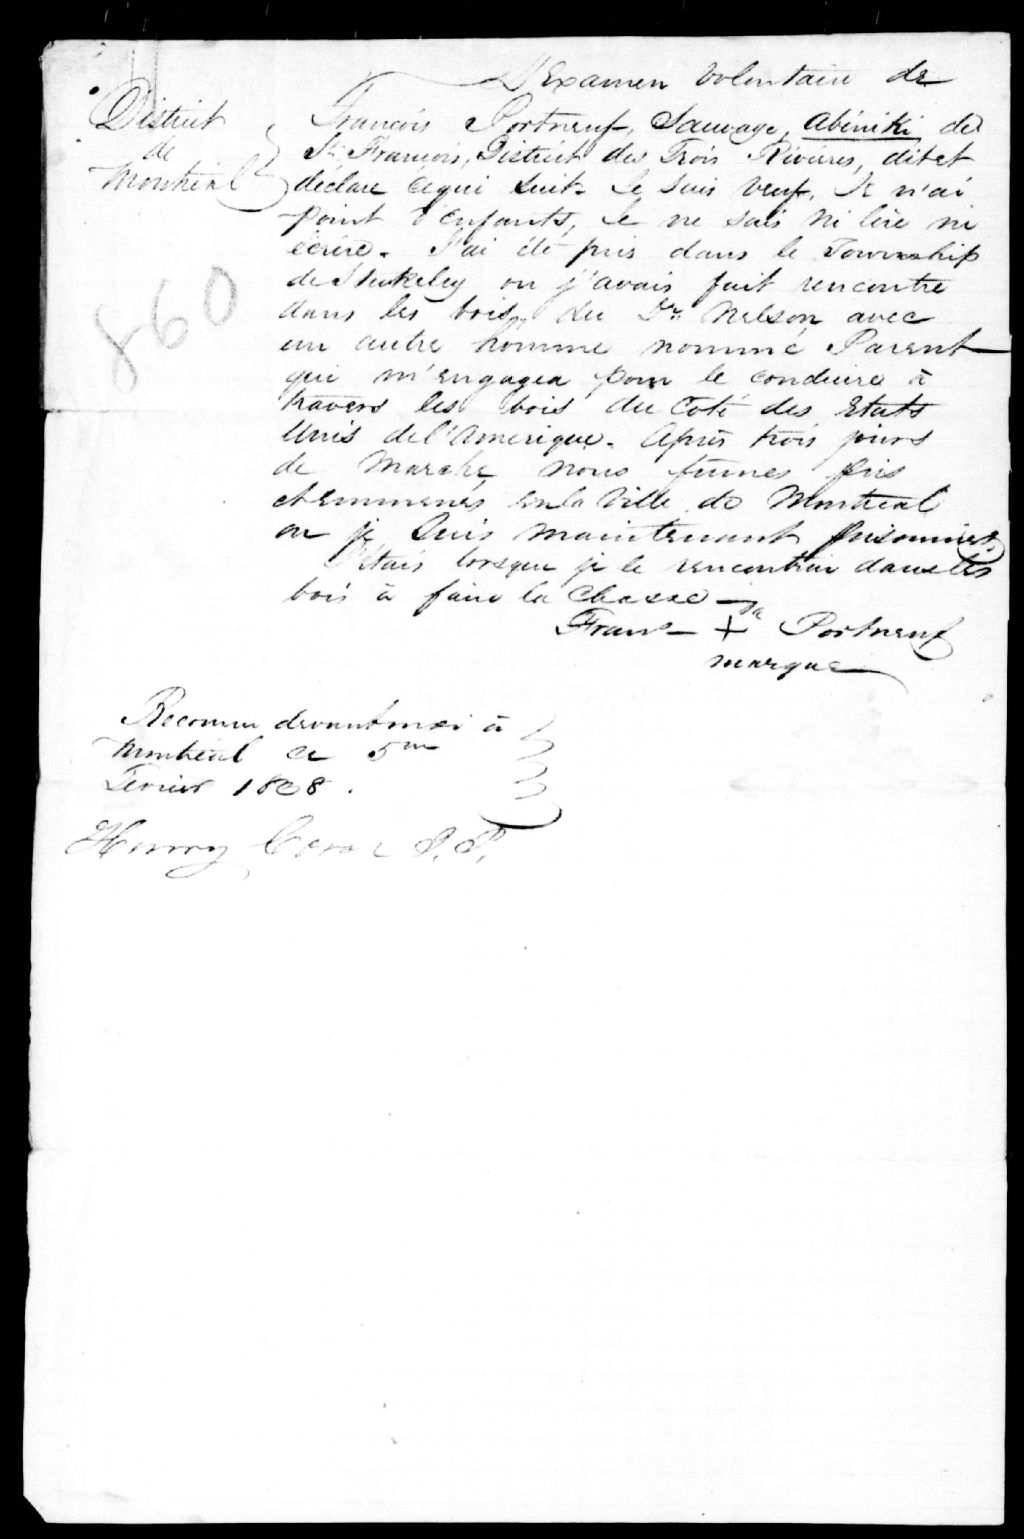 L'Examen volontaire de
District
de
Montréal
François Portneuf, Sauvage, Abéniki de
St. François, District des Trois Rivières, dit et
déclare ce qui suit. Je suis veuf, Je n'ai
point d'enfants, Je ne sais ni lire ni
écrire. J'ai été pris dans le Township
de Stukeley ou j'avais fait rencontre
dans les bois, du Dr. Nelson avec
un autre homme nommé Parent
qui m'engagea pour le conduire à
travers les bois du coté des Etats
Unis de l'Amérique. Après trois jours
de marche, nous fumes pris
et emmenés en la ville de Montréal
ou je suis maintenant prisonnier.
J'étais lorsque je le rencontrai dans les
bois à faire la chasse
Frans. + sa Portneuf
marque
860
Reconnu devant moi à
Montréal ce 5me
Fevrier 1838.
Henry P.P.